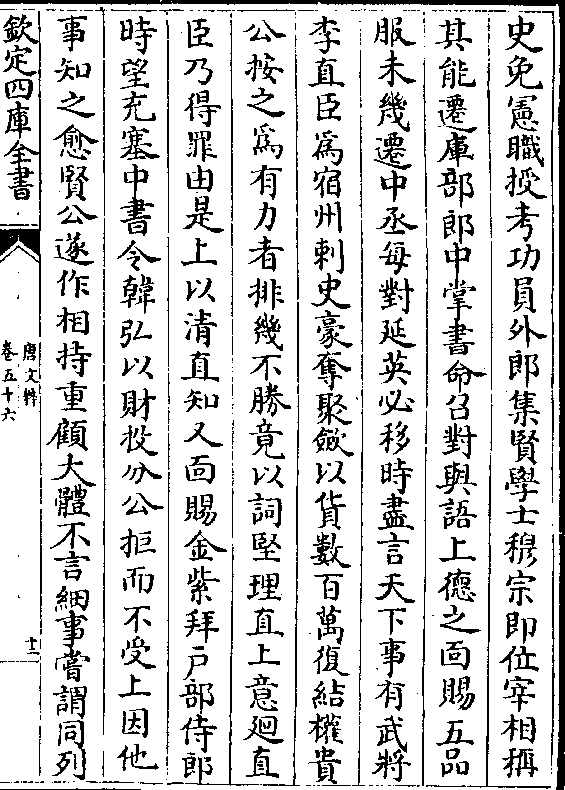 史免憲職授考功員外郎集賢學士穆宗即位宰相稱
其能遷庫部郎中掌書命召對與語上德之面賜五品
服未幾遷中丞每對延英必移時盡言天下事有武將
李直臣爲宿州刺史豪奪聚斂以貨數百萬復結權貴
公按之爲有力者排幾不勝竟以詞堅理直上意廻直
臣乃得罪由是上以清直知又面賜金紫拜戸部侍郎
時望充塞中書令韓弘以財投分公拒而不受上因他
事知之愈賢公遂作相持重顧大體不言細事嘗謂同列
欽定四庫全書
唐文粹
卷五十六
十二